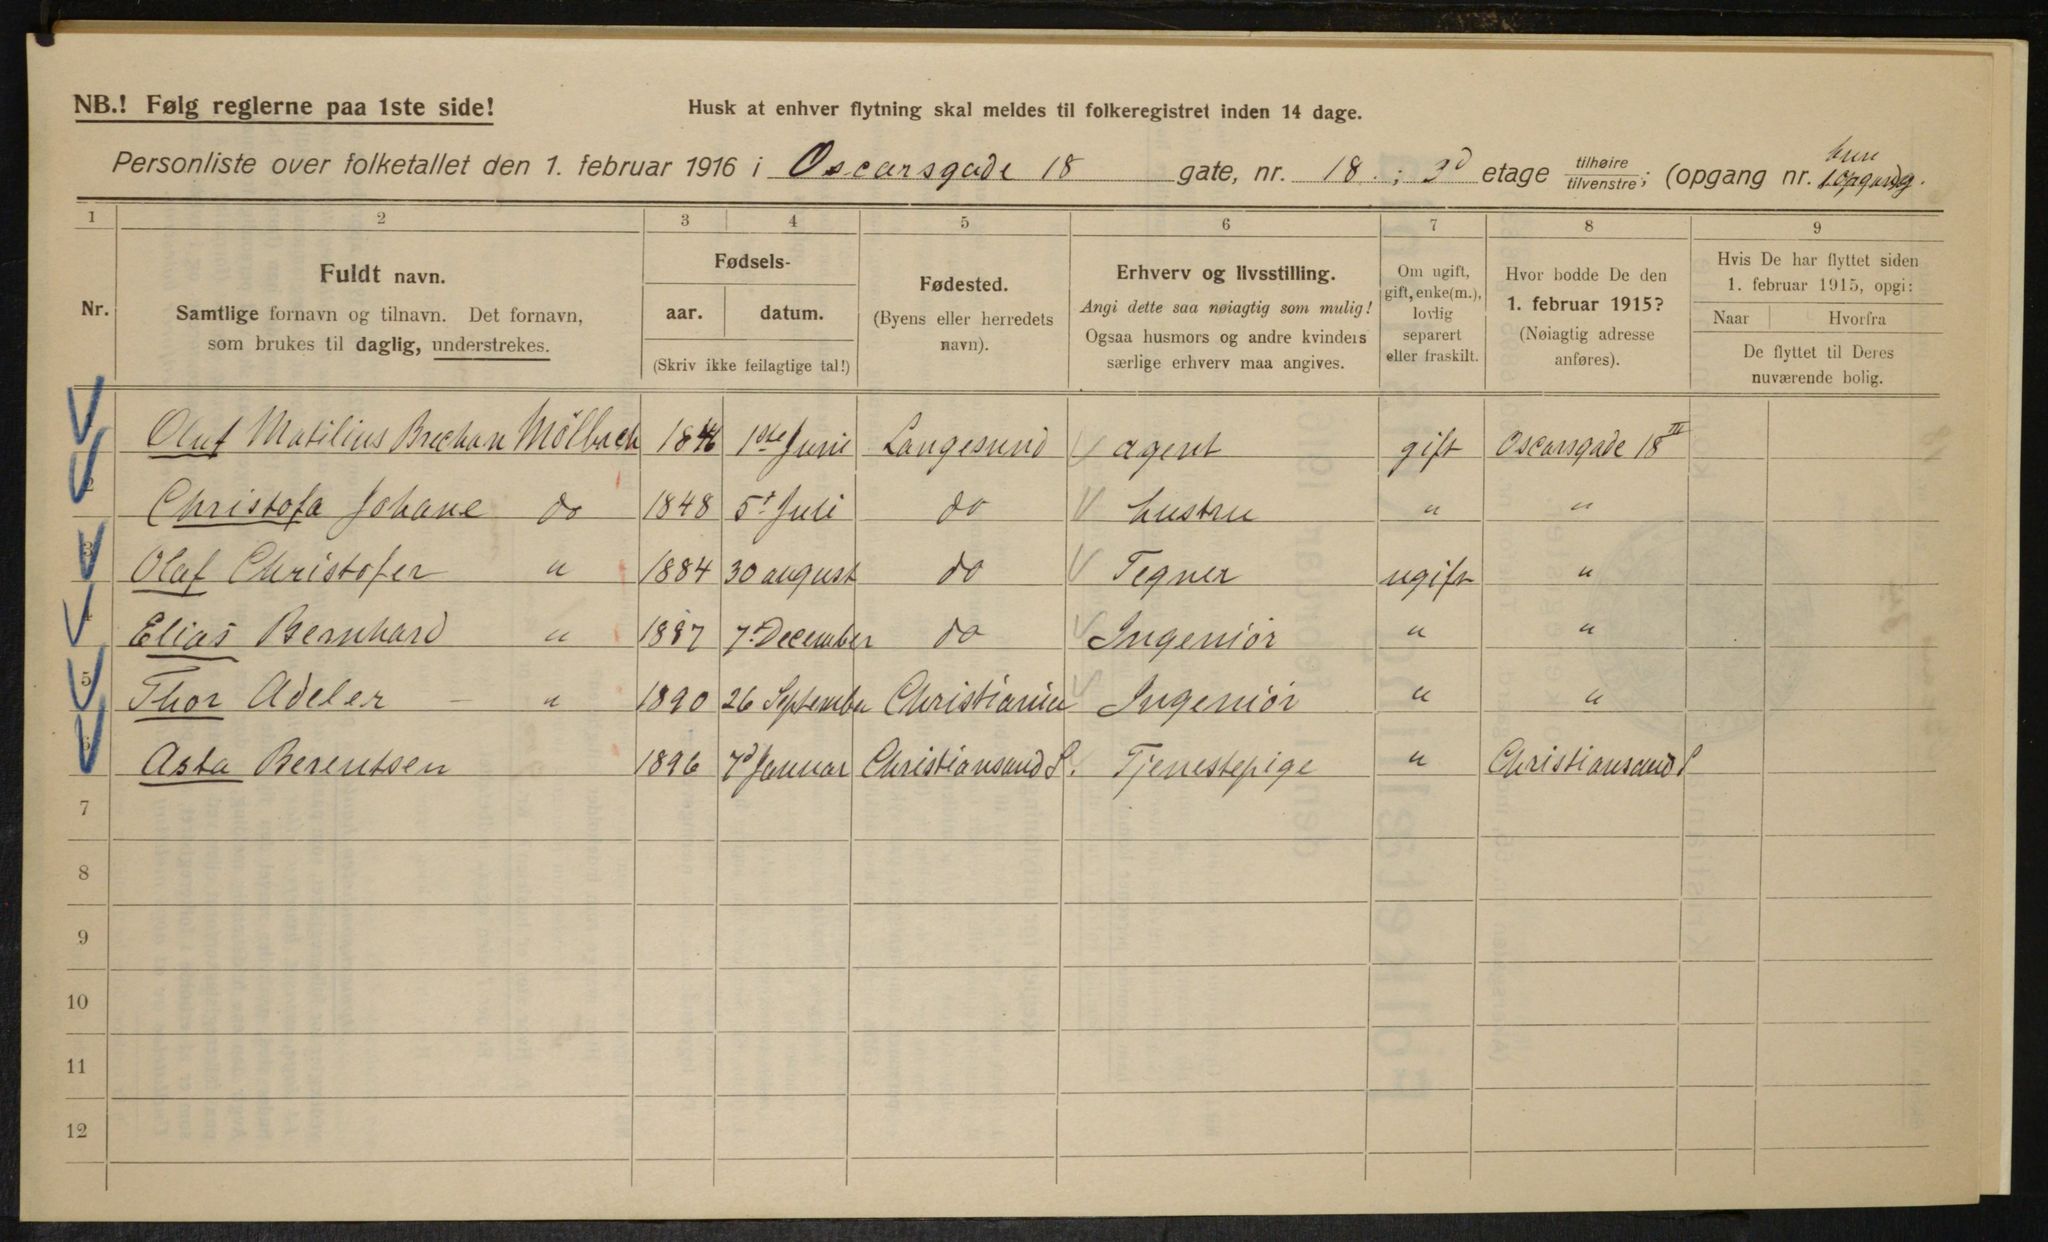 NB.! Følg reglerne paa 1ste side!
Husk at enhver flytning skal meldes til folkeregistret inden 14 dage.
Personliste over folketallet den 1. februar 1916 i Oscarsgade 18 gate, nr. 18. ; 3d etage tilhøire / tilvenstre; (opgang nr. 1 opgang.
1 2 3 4 5 6 7 8 9
Nr.
Fuldt navn.
Samtlige fornavn og tilnavn. Det fornavn,
som brukes til daglig, understrekes.
Fødsels-
aar. datum.
(Skriv ikke feilagtige tal!)
Fødested.
(Byens eller herredets
navn).
Erhverv og livsstilling.
Angi dette saa nøiagtig som mulig!
Ogsaa husmors og andre kvinders
særlige erhverv maa angives.
Om ugift,
gift, enke(m.),
lovlig
separert
eller fraskilt.
Hvor bodde De den
1. februar 1915?
(Nøiagtig adresse
anføres).
Hvis De har flyttet siden
1. februar 1915, opgi:
Naar Hvorfra
De flyttet til Deres
nuværende bolig.
Oluf Matilius Brechan Mölbach 1846 1ste Juni Langesund agent gift Oscarsgade 18 III
2 Christofa Johane do 1848 5t Juli do hustru " "
3 Olaf Christofer " 1884 30 august do Tegner ugift "
4 Elias Bernhard " 1887 7. December do Ingeniör " "
5 Thor Adeler - " 1890 26 September Christiania Ingeniör " "
6 Asta Berentsen 1896 7d Januar Christiansand S. Tjenestepige " Christiansand S
7
8
9
10
11
12